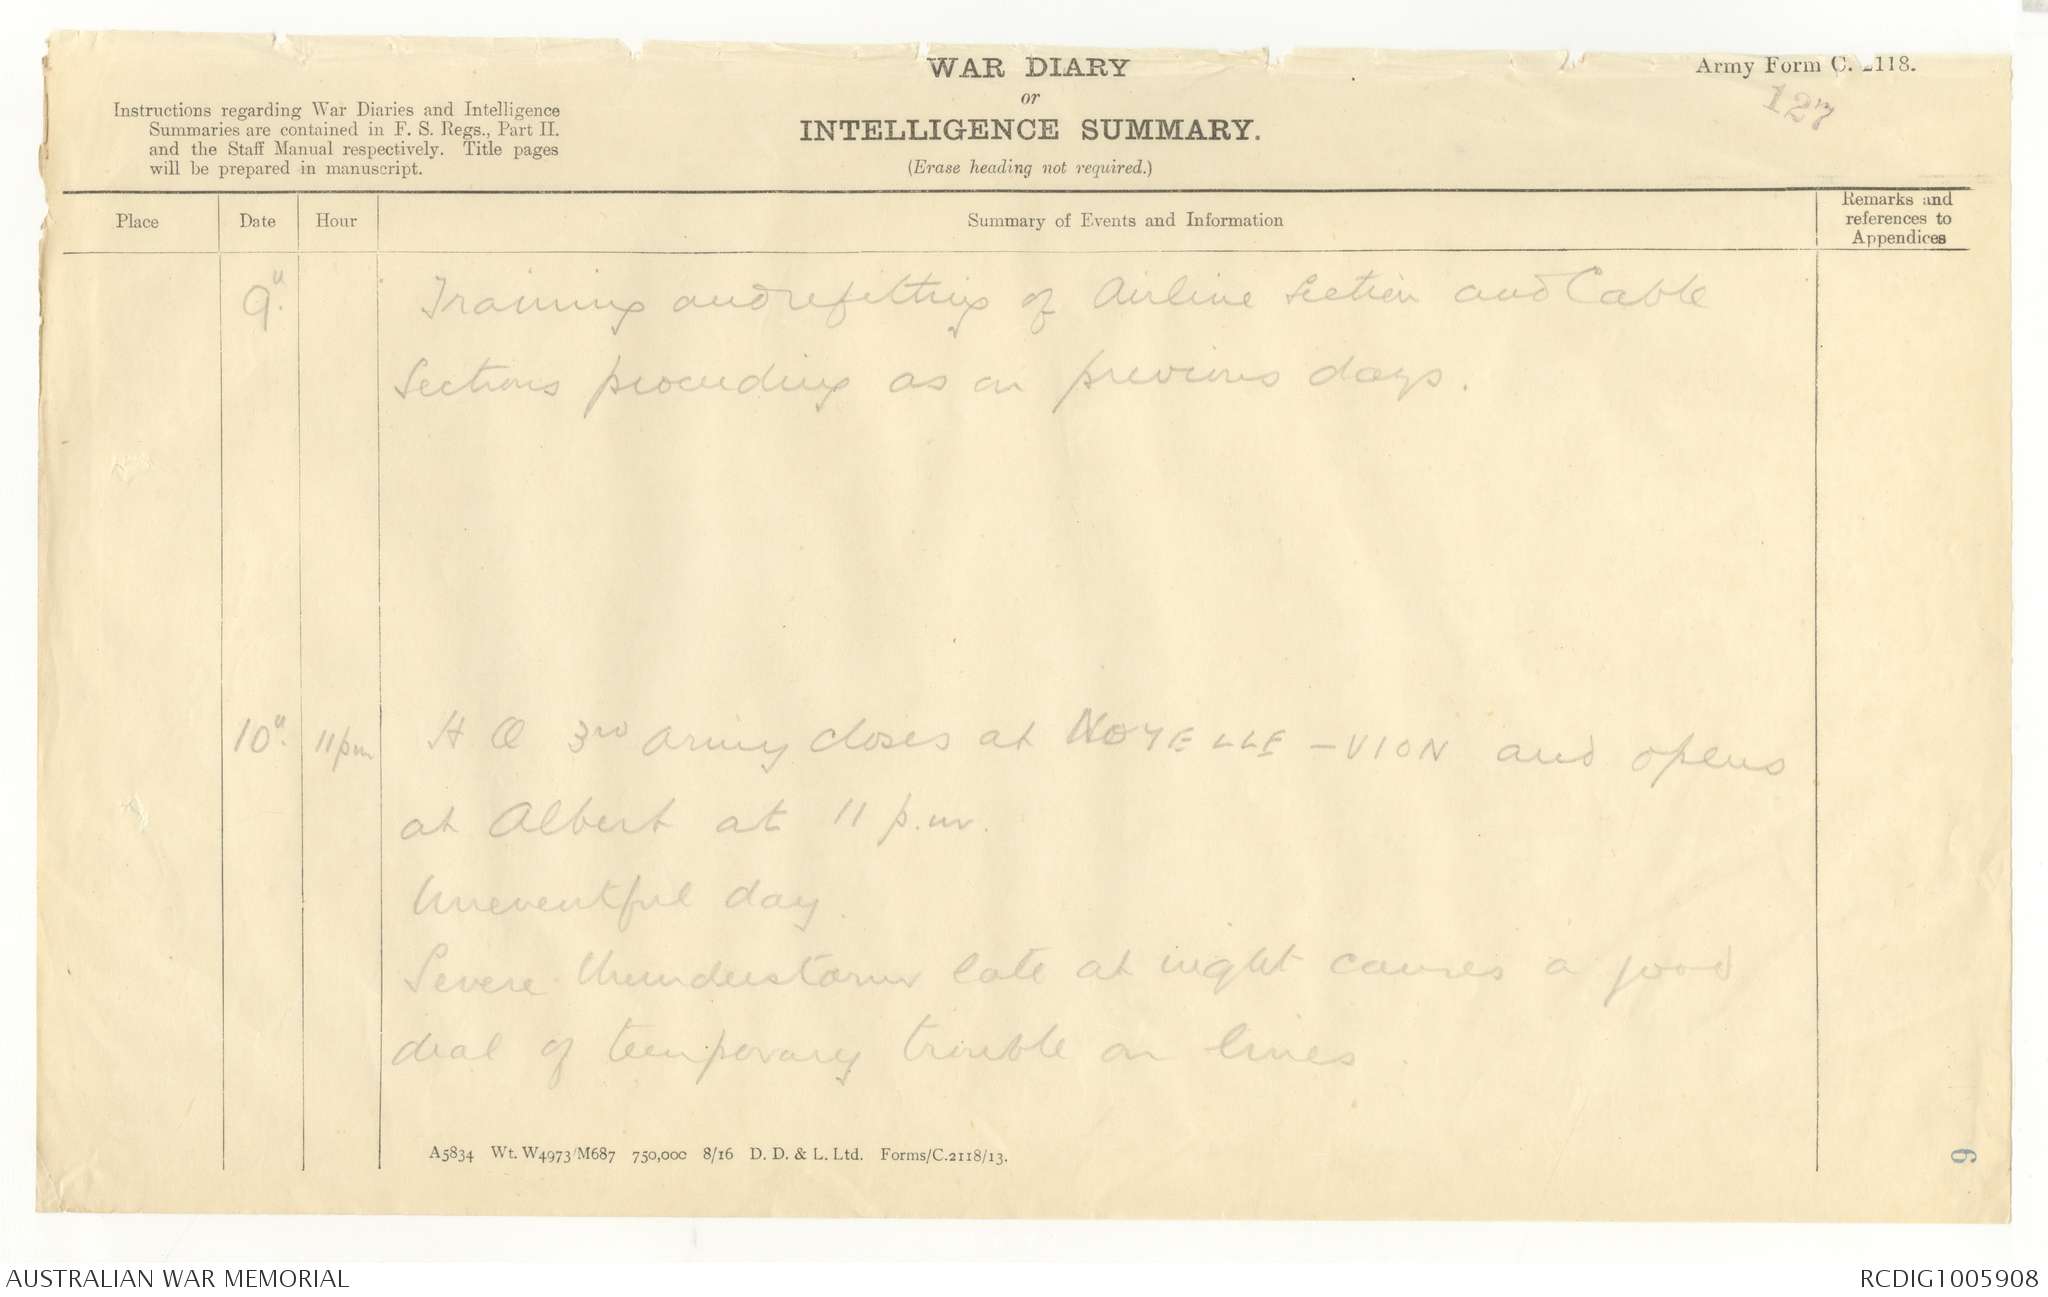 WAR DIARY
or
INTELLIGENCE SUMMARY.
(Erase heading not required.)
Army Form C. 2118.
127
Instructions regarding War Diaries and Intelligence
Summaries are contained in F. S. Regs., Part II.
and the Staff Manual respectively. Title pages
will be prepared in manuscript.
Place Date Hour Summary of Events and Information Remarks and
references to
Appendices
9th. Training and refitting of Airline Section and Cable
Sections proceeding as on previous days.
10th. 11pm H Q 3rd Army closes at NOYELLE-VION and opens
at Albert at 11 p.m.
Uneventful day.
Severe thunderstorm late at night causes a good
deal of temporary trouble on lines.
A5834 Wt. W4973/M687 750,000 8/16 D. D. & L. Ltd. Forms/C.2118/13.
9
AUSTRALIAN WAR MEMORIAL
RCDIG1005908